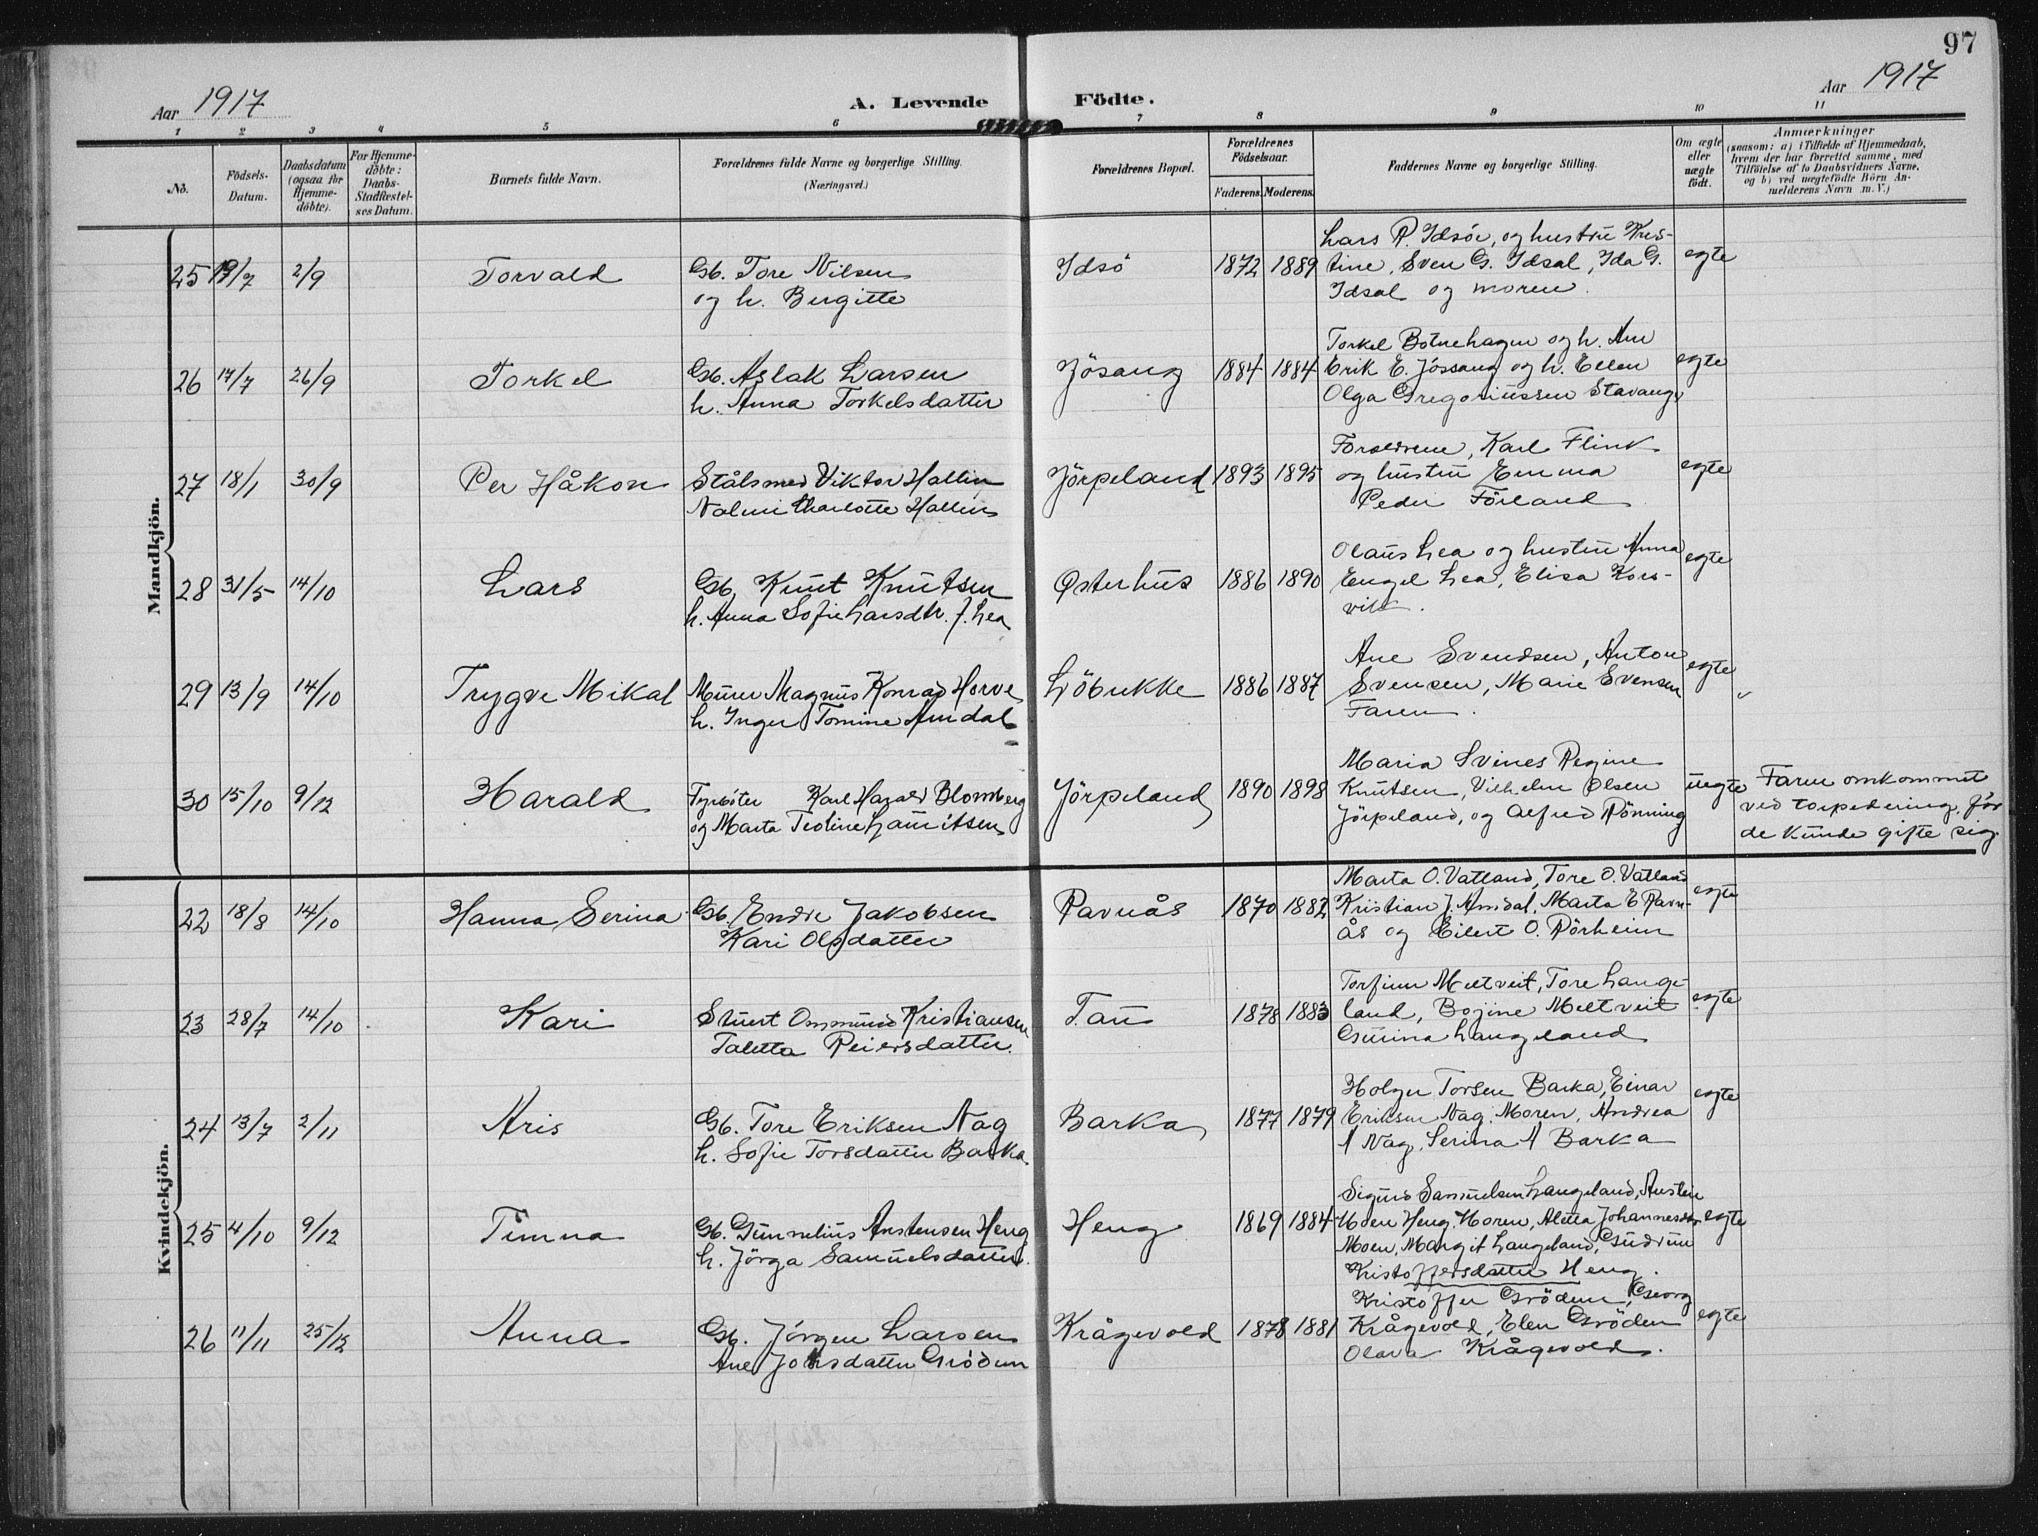 97
Aar 1917
A. Levende Födte.
Aar 1917
1 2 3 4 5 6 7 8 9 10 11
No.
Födsels-
Datum.
Daabsdatum
(ogsaa for
Hjemme-
döbte).
For Hjemme-
döbte:
Daabs-
Stadfæstel-
ses Datum.
Barnets fulde Navn.
Forældrenes fulde Navne og borgerlige Stilling.
(Næringsvei.)
Forældrenes Bopæl.
Forældrenes
Födselsaar.
Faderens. Moderens.
Faddernes Navne og borgerlige Stilling.
Om ægte
eller
uægte
födt.
Anmærkninger
(saasom: a) i Tilfælde af Hjemmedaab,
hvem der har forrettet samme, med
Tilföielse af to Daabsvidners Navne,
og b) ved uægtefödte Börn An-
melderens Navn m. V.)
Mandkjön.
25 19/7 2/9 Torvald
Gb. Tore Nilsen
og h. Bergitte
Idsö 1872 1889
Lars P. Idsöe, og hustru Kris-
tine, Sven G. Idsal, Ida G.
Idsal og moren.
egte
26 17/7 26/9 Torkel
Gb. Aslak Larsen
h. Anna Torkelsdatter
Jösang 1884 1884
Torkel Botnehagen og h. Ane
Erik E. Jössang og h. Ellen
Olga Gregoriussen Stavang
egte
27 18/1 30/9 Per Håkon
Stålsmed Viktor Hallin
Charlotte Hallin
Jörpeland 1893 1895
Forældrene, Karl Flink
og hustru Emma
Peder Förland
egte
28 31/5 14/10 Lars
Gb. Knut Knutsen
h. Anna Sofie Larsdtr. f. Lea
Østerhus 1886 1890
Olaus Lea og hustru Anna
Engel Lea, Elisa Kors-
vik.
egte
29 13/9 14/10 Trygve Mikal
Murer Magnus Konrad Horve
h. Inger Tomine Amdal
Löbrekke 1886 1887
Ane Svendsen, Anton
Svensen, Marie Svensen
Faren.
egte
30 15/10 9/12 Harald
Fyrböter Karl Harald Blomberg
og Marta Teoline Lauritsen
Jörpeland 1890 1898
Maria Svines Regine
Knutsen, Vilhelm Olsen
Jörpeland, og Alfred Rönning
uegte
Faren omkommet
ved torpedering, för
de kunde gifte sig.
Kvindekjön.
22 18/8 14/10 Hanna Serina
Gb. Endre Jakobsen
Kari Olsdatter
Ravnås 1870 1882
Marta O. Vatland, Tore O. Vatland
Kristian J. Amdal, Marta E Ravn-
ås og Eilert O. Rörheim
egte
23 28/7 14/10 Kari
Stuert Ommund Kristiansen
Taletta Reiersdatter.
Tau 1878 1883
Torfinn Meltveit, Tore Lange-
land, Bogine Meltveit
Gurina Langeland
egte
24 13/7 2/11 Aris
Gb. Tore Eriksen Nag
h. Sofie Torsdatter Barka
Barka 1877 1879
Holger Torsen Barka, Einar
Eriksen Nag. Moren, Andrea
A Nag, Serina A Barka
egte
25 4/10 9/12 Timna
Gb. Gunnelius Anstensen Heng
h. Jörga Samuelsdatter.
Heng 1869 1884
Sigurd Samuelsen Langeland, Austein
Moen Heng. Moren, Aletta Johannesdtr
Moen, Margit Langeland, Gudrun
Kristoffersdatter Heng.
egte
26 11/11 25/12 Anna
Gb. Jörgen Larsen
Ane Johsdatter Grödem
Krågevold 1878 1881
Kristoffer Grödem, Georg
Krågevold, Elen Gröden
Olava Krågevold.
egte